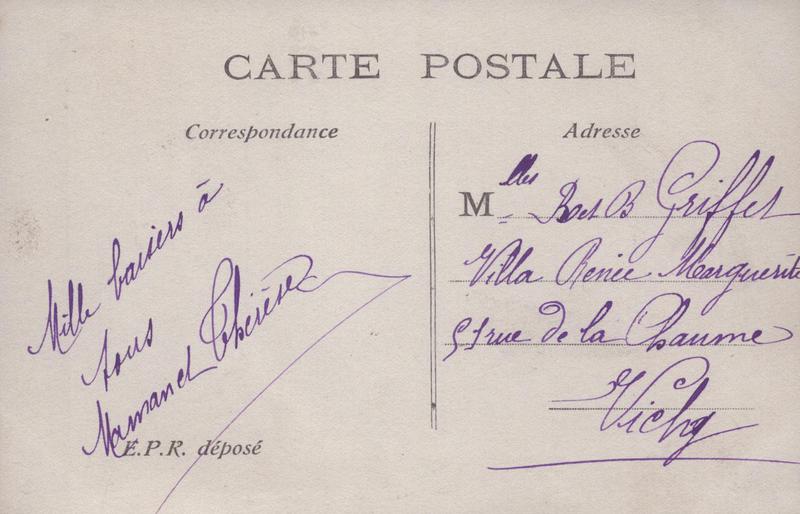 CARTE POSTALE
Correspondance
Adresse
Mille baisers à
tous
Maman et Thérèse
E.P.R. déposé
Mlles R et B Griffet
Villa Renée Marguerite
51 rue de la Chaume
Vichy